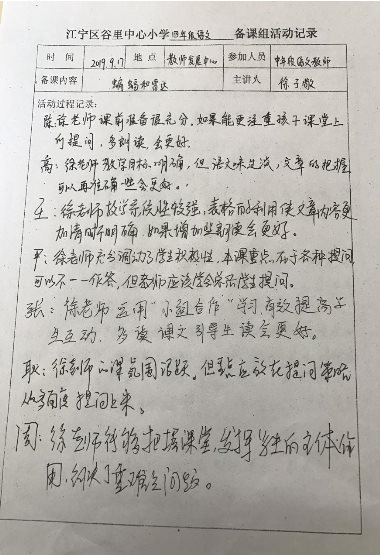 江宁区谷里中心小学四年级语文 备课组活动记录
时间 2019.9.17 地点 教师发展中心 参加人员 四年级语文教师
备课内容 蝙蝠和雷达 主讲人 徐子
活动过程记录:
陈:徐老师课前准备很充分,如果能更注重孩子课堂上
的提问,多朗读会更好。
高:徐老师教学目标明确,但语文味欠浓,文章的把握
可以再准确些会更好。
王:徐老师教学导续性较强,表格的利用使文章内容更
加清晰明确,如果增加些朗读会更好。
平:徐老师充分调动了学生积极性,本课重点,在于各种提问
可以不一一作答,但教师应该学会总结学生提问。
张:徐老师运用“小组合作”学习,有效提高了
生互动,多读课文引导学生读会更好。
耿:徐老师的课氛围活跃。但重点应放在提问策略
从多角度提问上来。
周:徐老师能够把握课堂,发挥学生的主体作
用,解决了重难点问题。